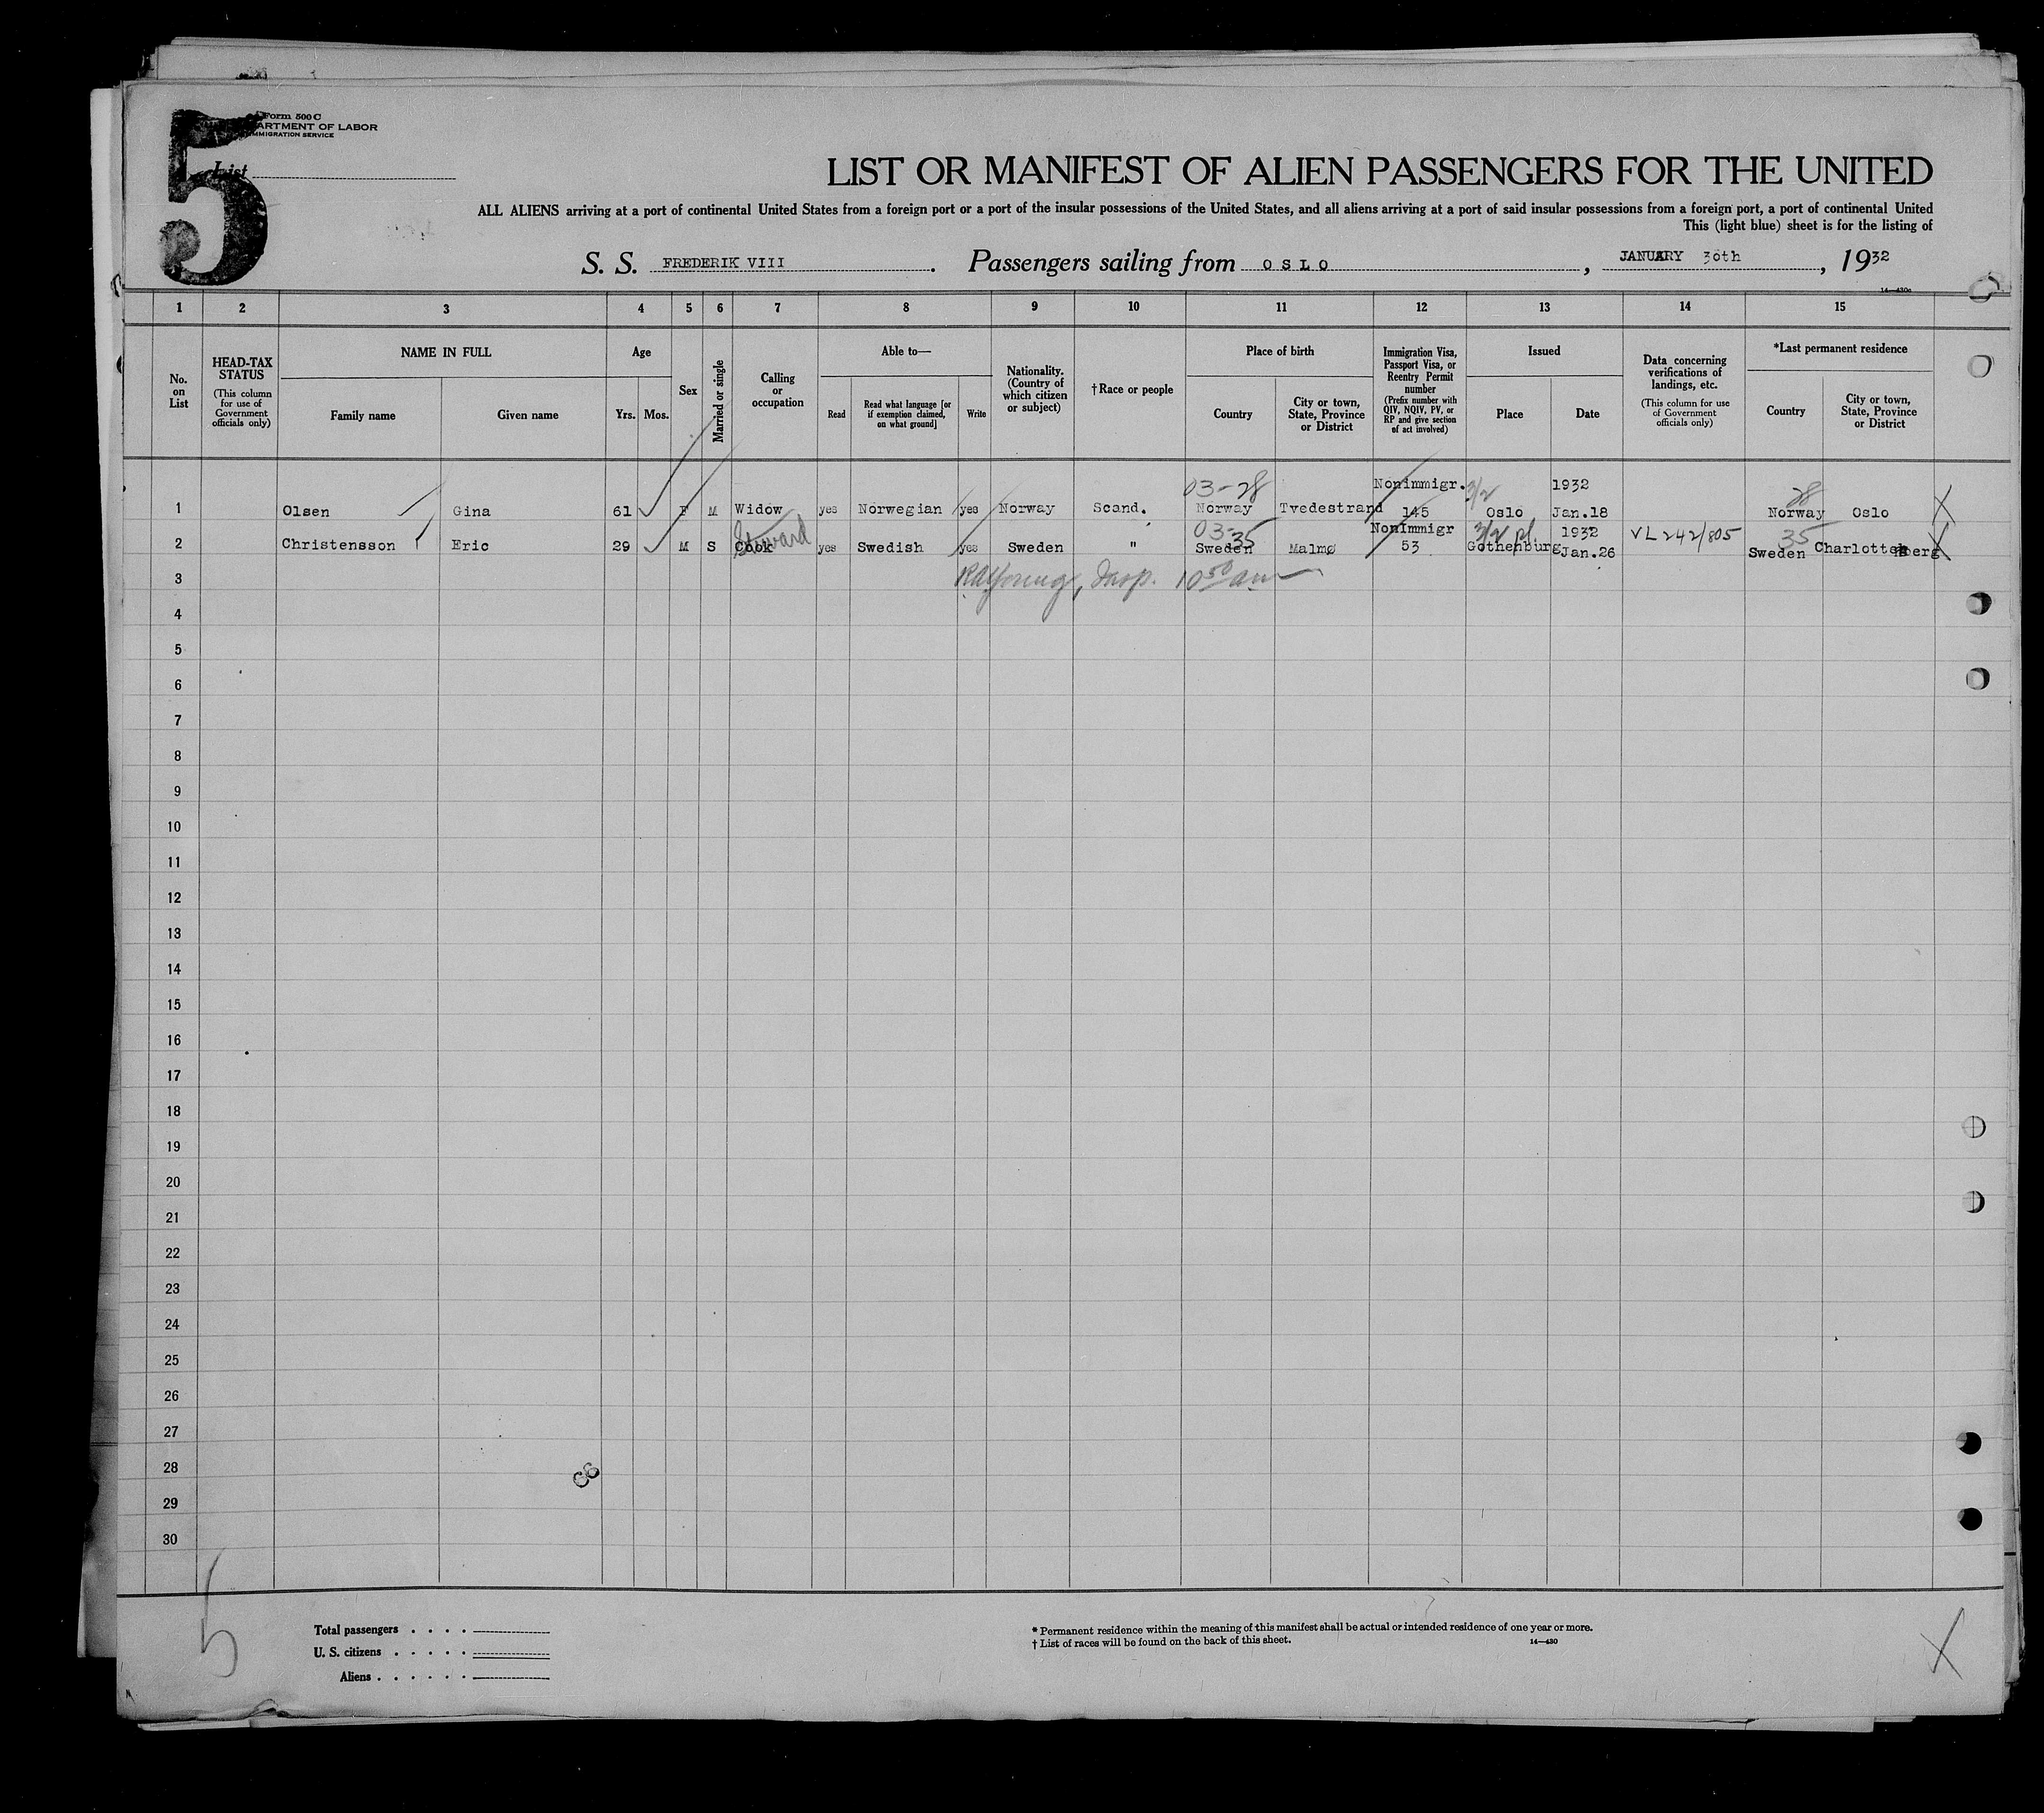 5
Form 500 C
ARTMENT OF LABOR
IMMIGRATION SERVICE
List
LIST OR MANIFEST OF ALIEN PASSENGERS FOR THE UNITED
ALL ALIENS arriving at a port of continental United States from a foreign port or a port of the insular possessions of the United States, and all aliens arriving at a port of said insular possessions from a foreign port, a port of continental United
This (light blue) sheet is for the listing of
S. S. FREDERIK VIII. Passengers sailing from OSLO, JANUARY 30th, 1932
14—430c
1 2 3 4 5 6 7 8 9 10 11 12 13 14 15
No. on List
HEAD-TAX STATUS (This column for use of Government officials only)
NAME IN FULL
Family name
Given name
Age
Yrs. Mos.
Sex
Married or single
Calling or occupation
Able to—
Read
Read what language [or if exemption claimed, on what ground]
Write
Nationality. (Country of which citizen or subject)
†Race or people
Place of birth
Country
City or town, State, Province or District
Immigration Visa, Passport Visa, or Reentry Permit number (Prefix number with QIV, NQIV, PV, or RP and give section of act involved)
Issued
Place
Date
Data concerning verifications of landings, etc. (This column for use of Government officials only)
*Last permanent residence
Country
City or town, State, Province or District
03-28 Nonimmigr. 3/2 1932 28
1 Olsen Gina 61 F M Widow yes Norwegian yes Norway Scand. Norway Tvedestrand 145 Oslo Jan.18 Norway Oslo X
Steward 03-35 Nonimmigr 3/2 pl. 1932 VL 242/805 35
2 Christensson Eric 29 M S Cook yes Swedish yes Sweden " Sweden Malmø 53 Gothenburg Jan.26 Sweden Charlottenberg X
3 RAYoung, Insp. 10 50 am
4
5
6
7
8
9
10
11
12
13
14
15
16
17
18
19
20
21
22
23
24
25
26
27
28
29
30
5
Total passengers
U. S. citizens
Aliens
* Permanent residence within the meaning of this manifest shall be actual or intended residence of one year or more.
† List of races will be found on the back of this sheet.
14—430
X